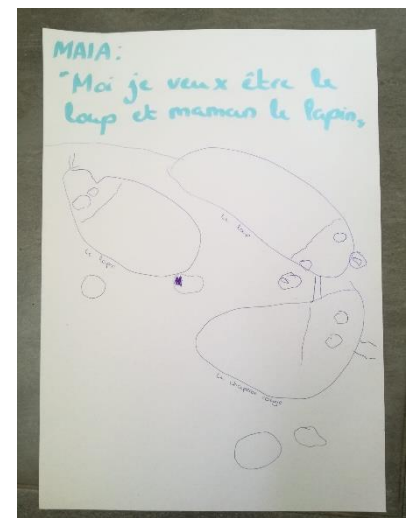 MAIA:
"Moi je veux être le
loup et maman le lapin"
Le loup
Le lapin
Le chaperon rouge